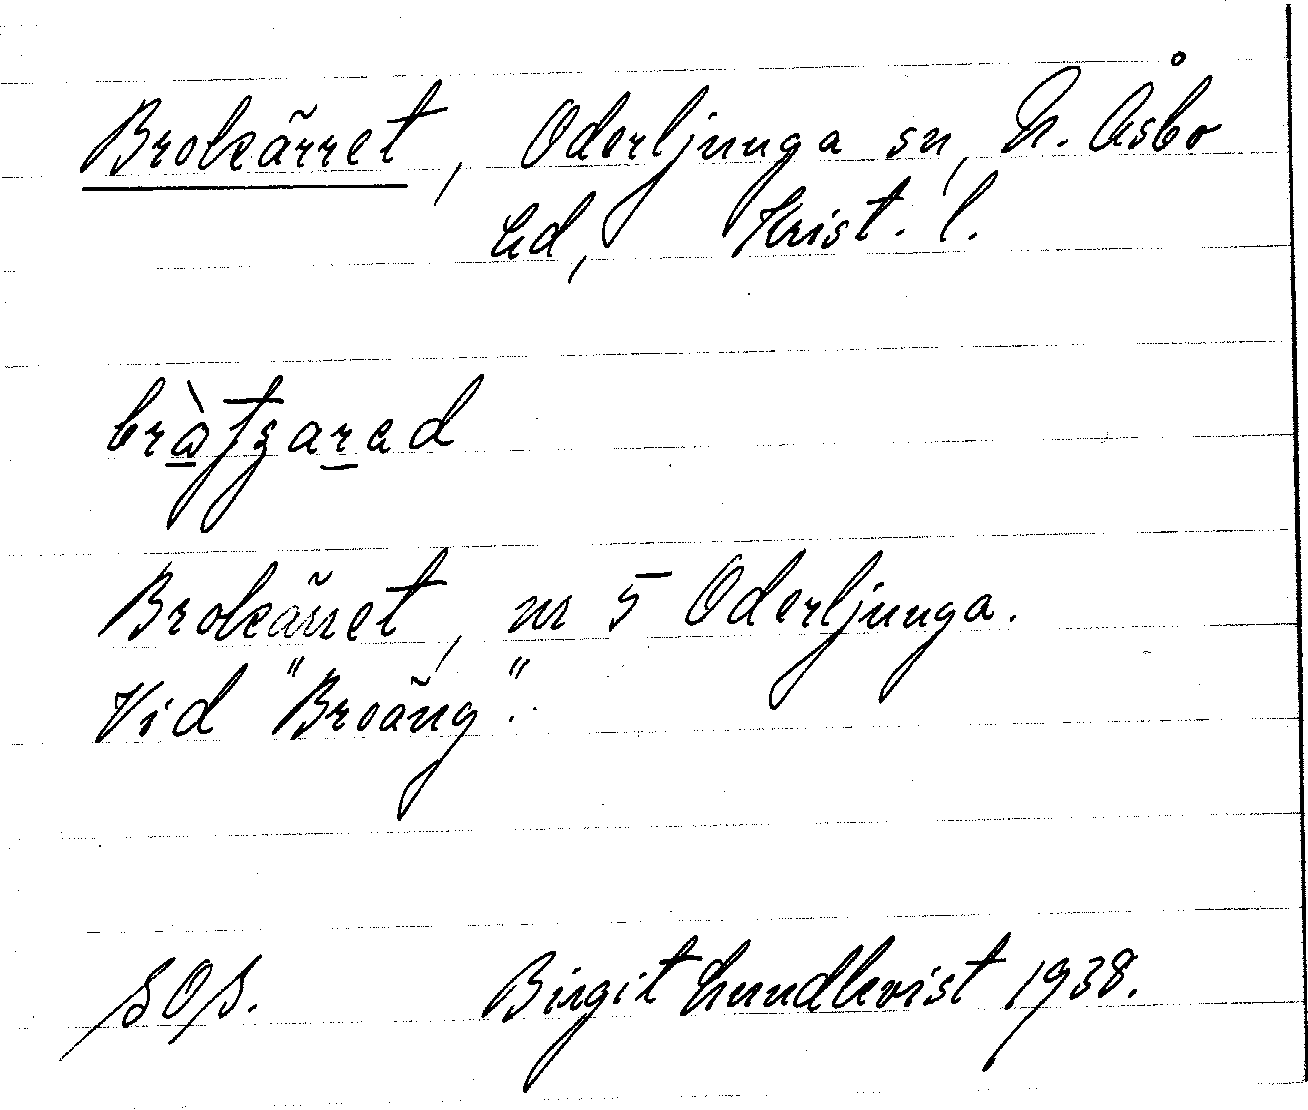 Brokärret, Oderljunga sn, N. Åsbo
hd, Krist. l.
Brokärret, nr 5 Oderljunga.
Vid "Broäng".
SOS. Birgit Lundkvist 1938.